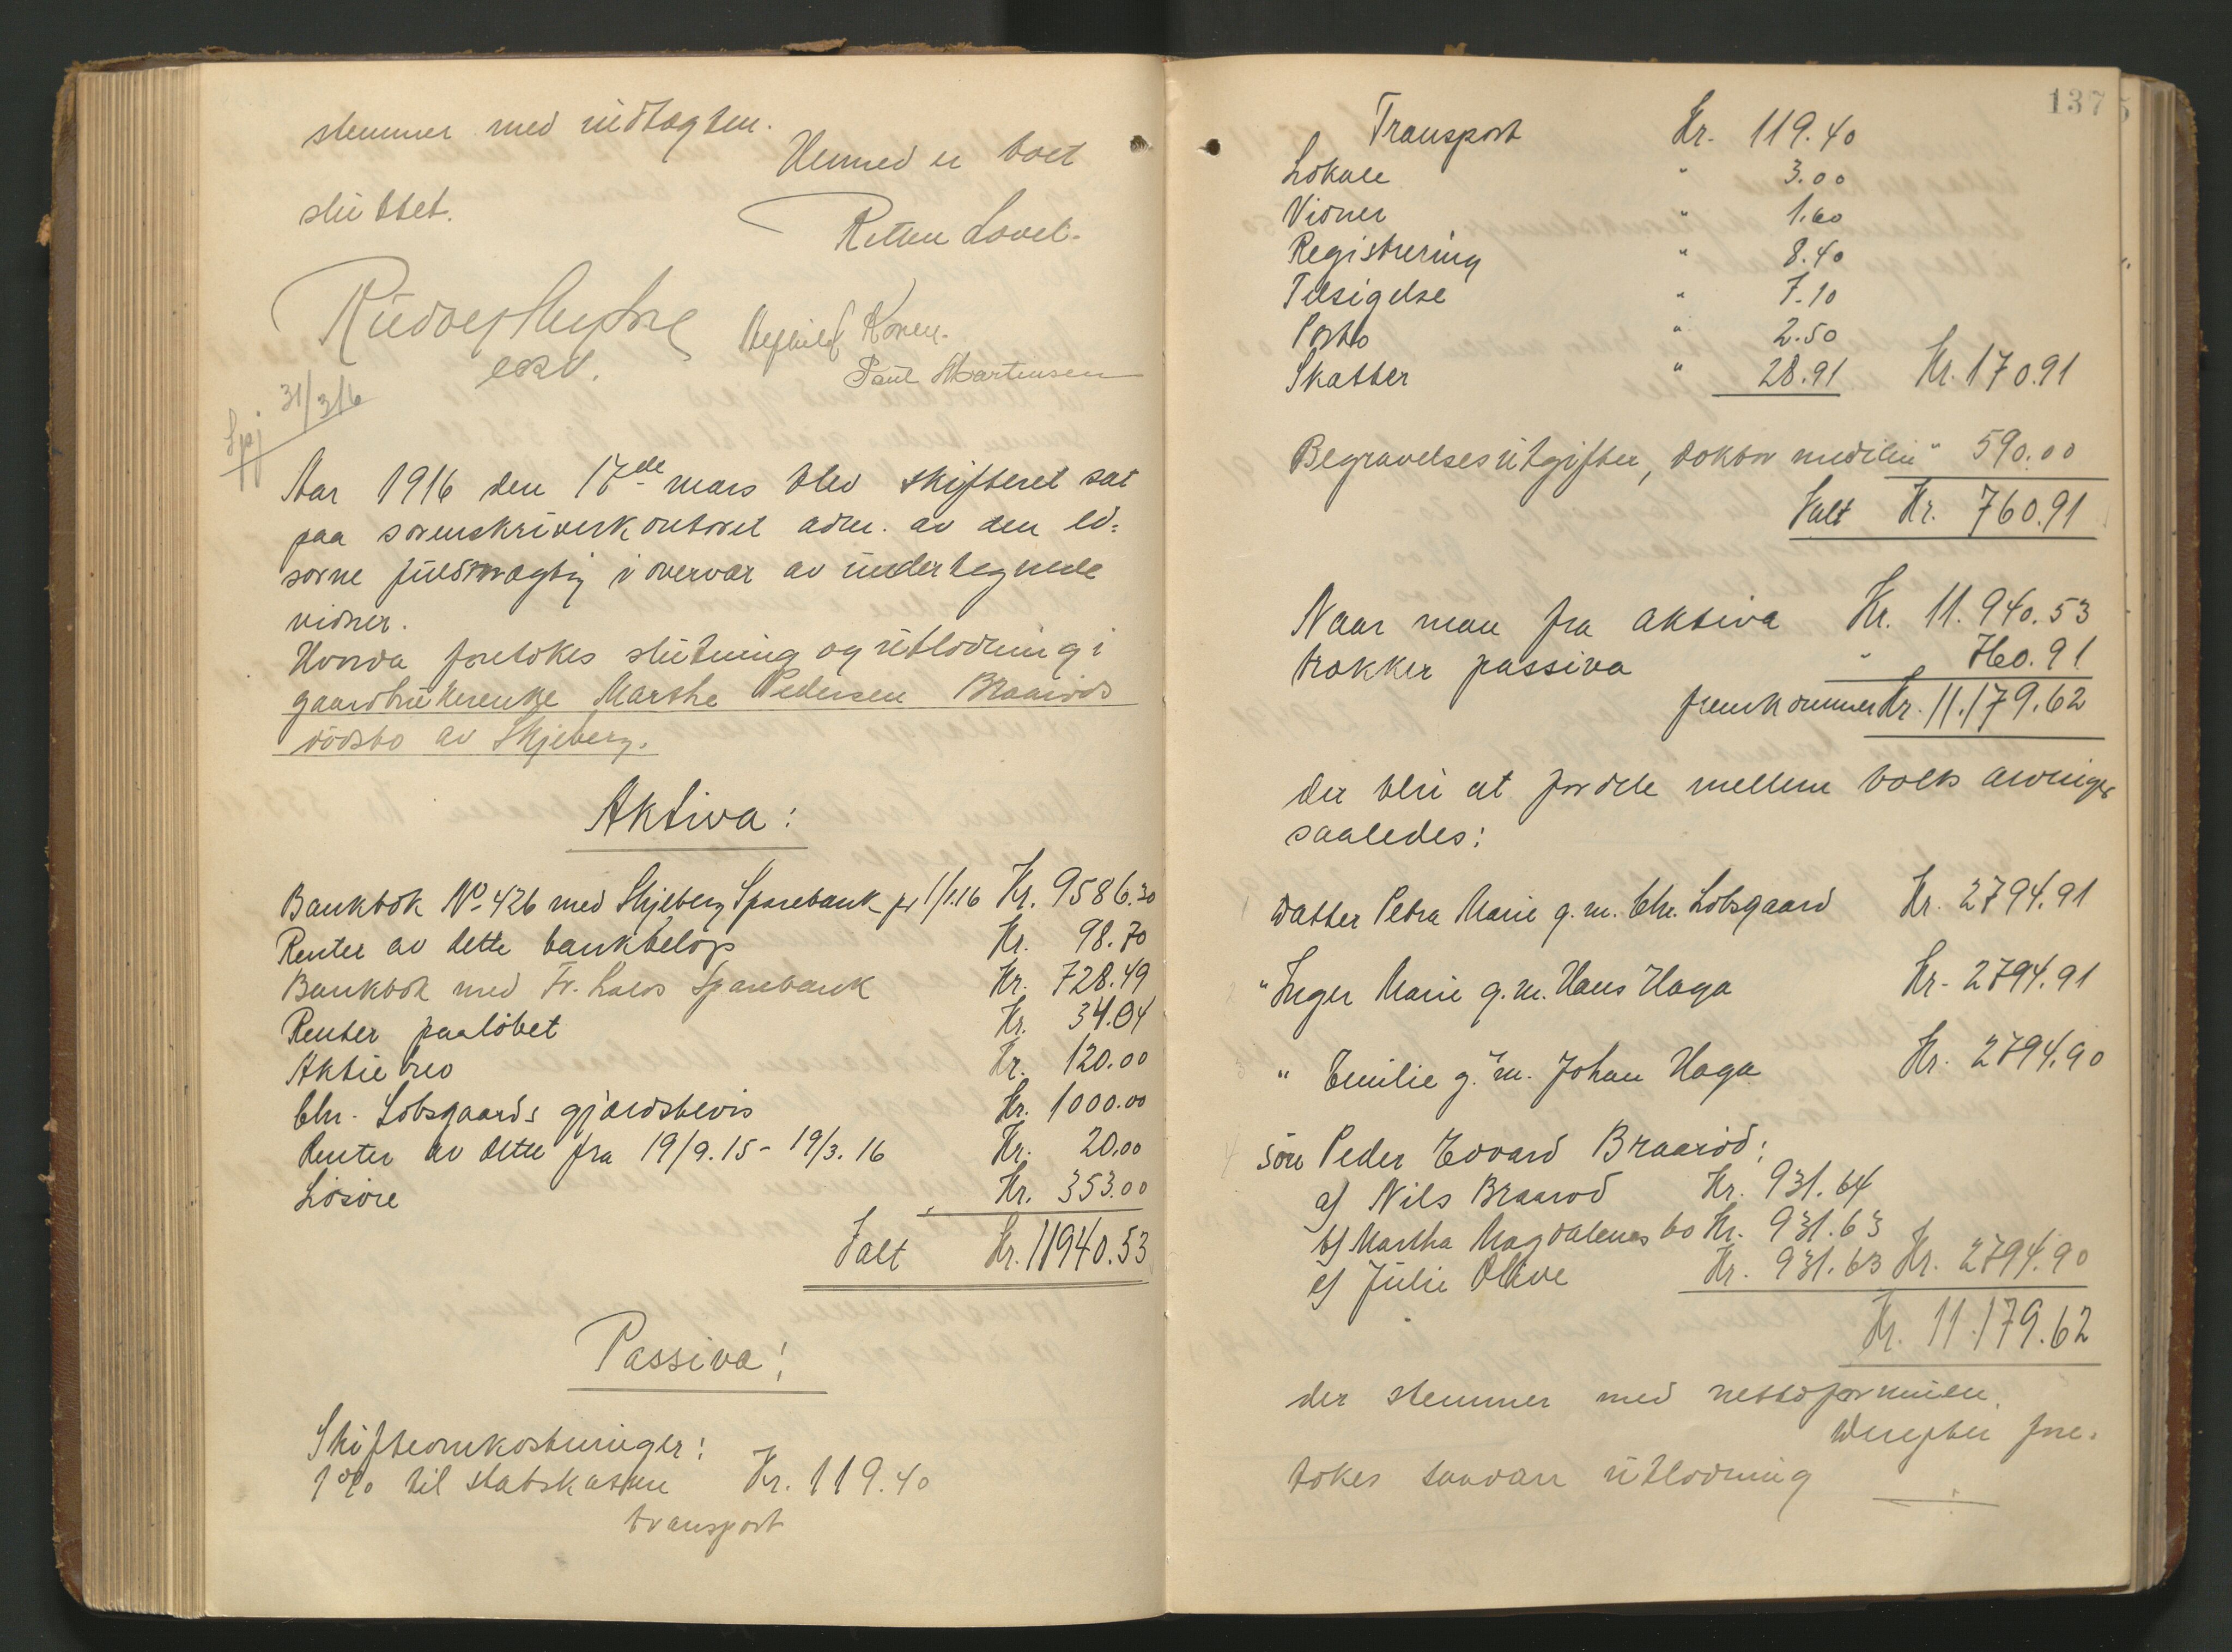 stemmer med indtægten.
Hermed er boet
sluttet.
Retten hævet.
Koren.
Paul Martensen
31/3 16
Aar 1916 den 17de mars blev skifteret sat
paa sorenskriverkontoret adm. av den ed=
sorne fuldmægtig i overvær av undertegnede
vidner.
Hvorda foretokes slutning og utlodning i
gaardbrukerenke Marthe Pedersen Braarøds
dødsbo av Skjeberg.
Aktiva:
Bankbok No 426 med Skjeberg Sparebank pr 1/1.16 Kr. 9586.30
Renter av dette bankbeløp Kr. 98.70
Bankbok med Fr.halds Sparebank Kr. 728.49
Renter paaløbet Kr. 34.04
Aktiebrev Kr. 120.00
Chr. Lobsgaards gjældsbevis Kr. 1000.00
Renter av dette fra 19/9.15 - 19/3.16 Kr. 20.00
Løsøre Kr. 353.00
Ialt Kr. 11940.53
Passiva:
Skifteomkostninger:
1% til statskassen Kr. 119.40
transport
137
Transport Kr. 119.40
Lokale " 3.00
Vidner " 1.60
Registrering " 8.40
Tilsigelse " 7.10
Porto " 2.50
Skatter " 28.91 Kr. 170.91
Begravelsesutgifter, doktor medicin " 590.00
Ialt Kr. 760.91
Naar man fra aktiva Kr. 11.940.53
trækker passiva " 760.91
fremkommer Kr. 11.179.62
der blir at fordele mellem boets arvinger
saaledes:
1 Datter Petra Marie g.m. Chr. Lobsgaard Kr. 2794.91
2 " Inger Marie g.m. Hans Haga Kr. 2794.91
3 " Emilie g.m. Johan Haga Kr. 2794.90
4 Søn Peder Edvard Braarød:
a) Nils Braarød Kr. 931.64
b) Martha Magdalenes bo Kr. 931.63
c) Julie Olave Kr. 931.63 Kr. 2794.90
Kr. 11.179.62
der stemmer med nettoformuen.
Derefter fore-
tokes saadan utlodning